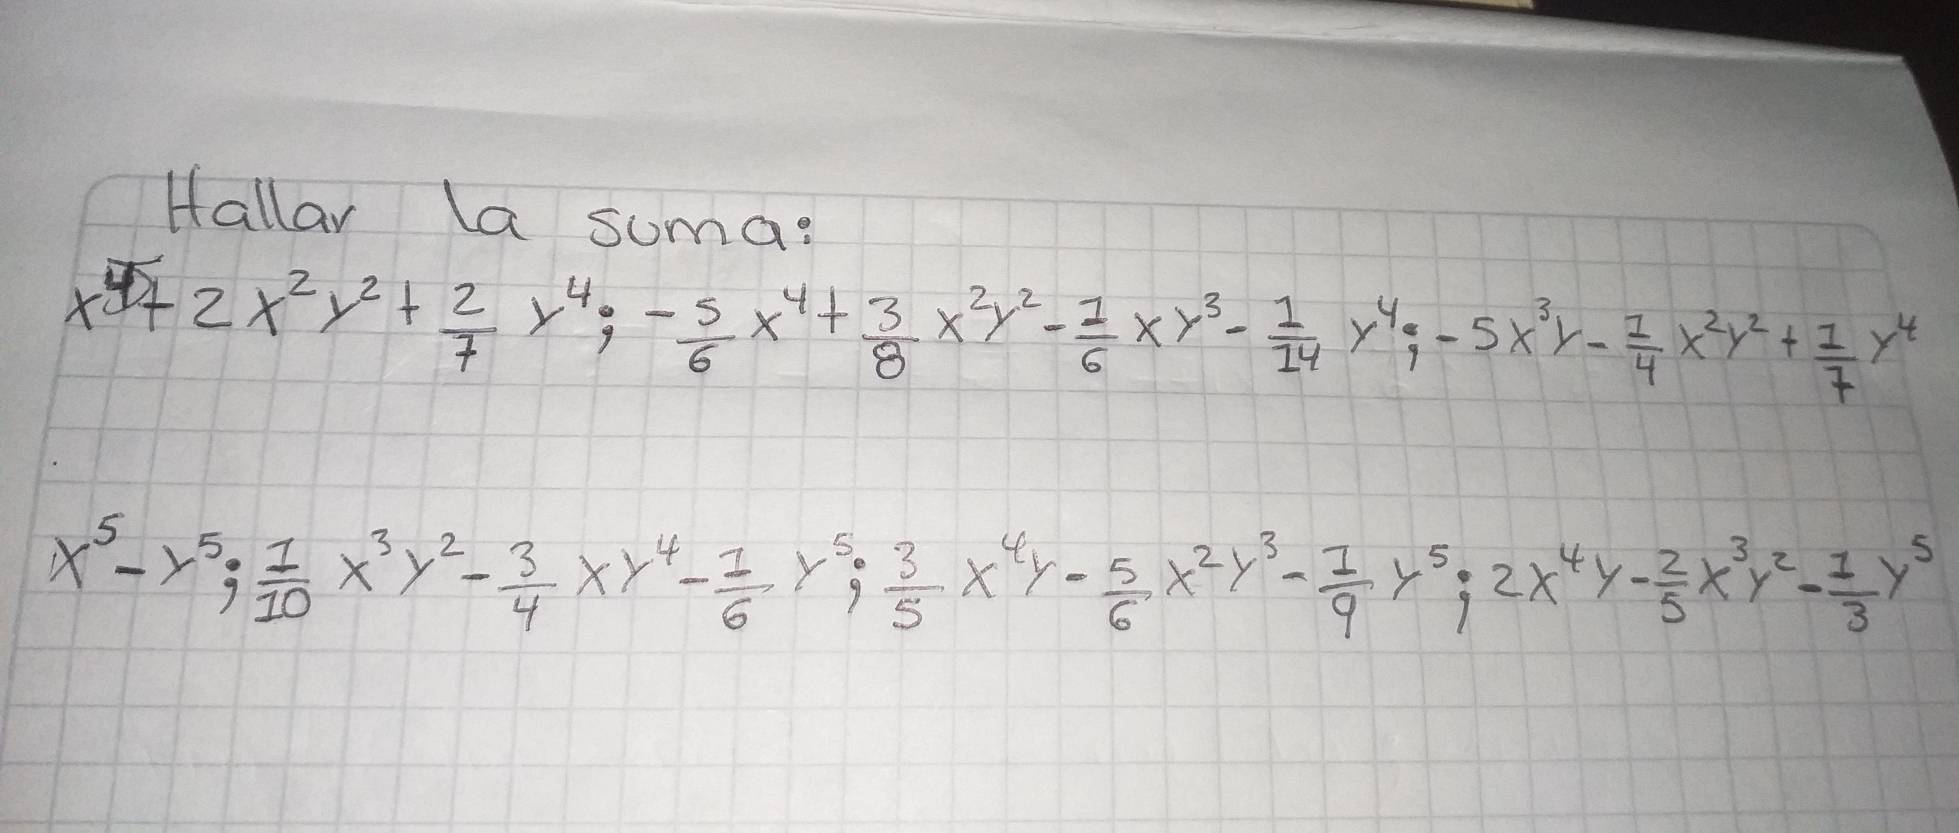 Hallar la suma:
x⁴ + 2x²y² + 2/7 y⁴; -5/6 x⁴ + 3/8 x²y² - 1/6 xy³ - 1/14 y⁴; -5x³y - 1/4 x²y² + 1/7 y⁴
x⁵ - y⁵; 1/10 x³y² - 3/4 xy⁴ - 1/6 y⁵; 3/5 x⁴y - 5/6 x²y³ - 1/9 y⁵; 2x⁴y - 2/5 x³y² - 1/3 y⁵